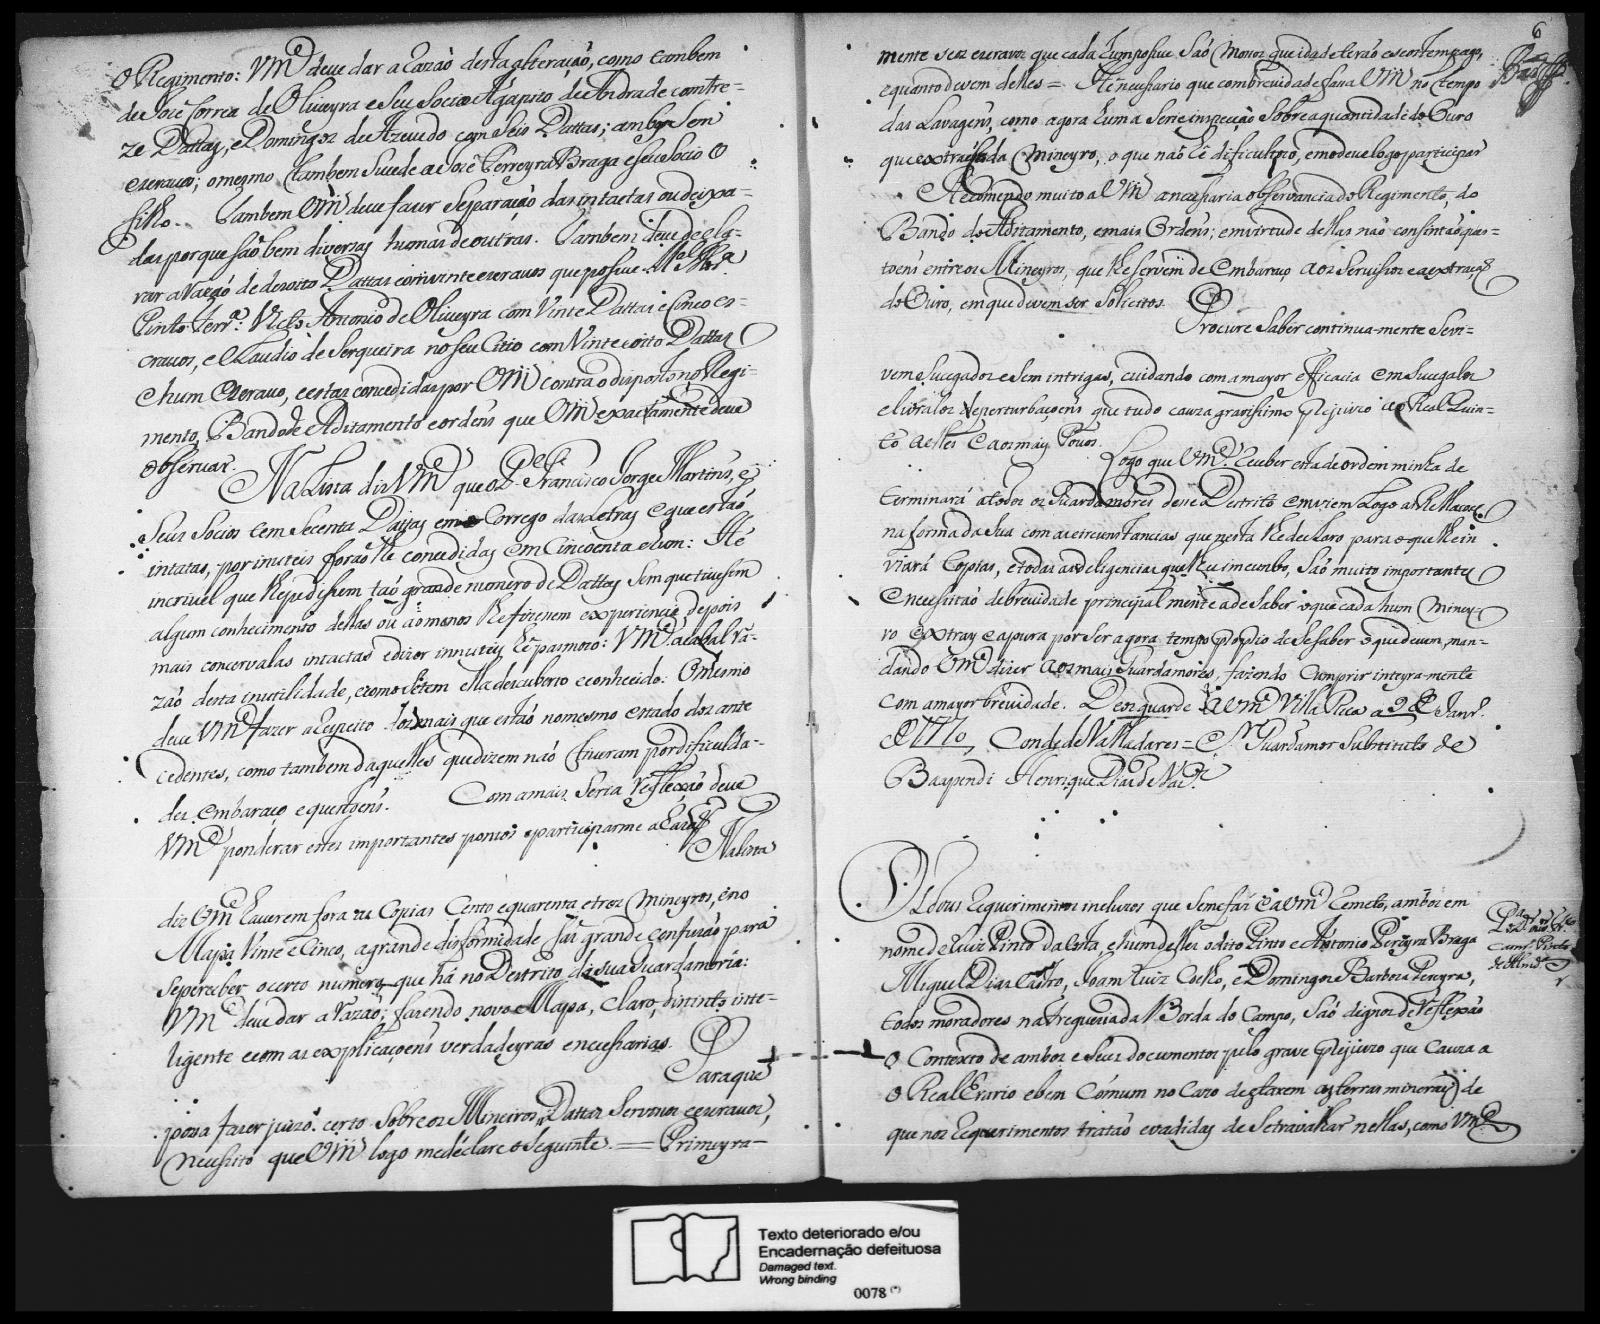 o Regimento: VM.ce deve dar a Razaõ desta alteraçaõ, como tambem
de Joze Correa de Oliveyra e Seu Socio Agapito de Andrade com tre=
ze Dattas, e Domingos de Azevedo com Seis Dattas; ambos Sem
escravos; o mezmo tambem Sucede a Joze Ferreyra Braga e seu Socio o
filho. Tambem VM.ce deve fazer Separaçaõ das intactas ou deixa=
das porque saõ bem diversas humas de outras. Tambem deve decla=
rar a Razaõ de dezoito Dattas com vinte escravos que possue M.el
Pinto Ferr.a: Antonio de Oliveyra com Vinte Dattas e Sinco es=
cravos, e Claudio de Serqueira no seu Citio com Vinte e oito Dattas
e hum Escravo, e estas concedidas por VM.ce contra o disposto no Regi=
mento, Bando de Aditamento e ordens que VM.ce exactamente deve
observar.
Na Lista diz VM.ce que o P.e Francisco Jorge Martins, e
Seus Socios tem Secenta Dattas em o Corrego das Letras e que estaõ
intatas, por inuteis foraõ lhe concedidas em Cincoenta e hum: He
incrivel que lhe pedissem taõ grande numero de Dattas Sem que tivesem
algum conhecimento dellas ou ao menos lhe fizesem experiencia, depois
mais concervalas intactas e dizer inuteis he pasmozo: VM.ce a cabal ra=
zaõ desta inutilidade, e como se tem ella descuberto e conhecido: O mesmo
deve VM.ce fazer a Respeito dos mais que estaõ no mesmo estado dos ante
cedentes, como tambem daquelles que dizem naõ tiveram por dificulda=
des, embaraço e questoens. Com a mais Seria reflexaõ deve
VM.ce ponderar estes importantes pontos e participarme a Razaõ
Na Lista
diz VM.ce haverem fora as Copias Cento e quarenta e tres Mineyros, e no
Mapa Vinte e Cinco, a grande disformidade faz grande confuzaõ para
se perceber o certo numero que há no Destrito de sua Guardamoria:
VM.ce deve dar a razaõ; fazendo novo Mapa, Claro, distinto inte=
ligente e com as explicaçoens verdadeyras e necessarias.
Para que
possa fazer juizo certo Sobre os Mineiros, Dattas Servinos e escravos,
Necessito que VM.ce logo me declare o Seguinte. = Primeyra=
6
mente Seos escravos que cada hum possue Saõ Mossos que idade teraõ
e quanto devem delles = He necessario que com brevidade faça VM.ce no tempo
das Lavagens, como agora huma Seria inspecçaõ Sobre a quantidade do Ouro
que extrahe cada Mineyro, o que naõ hé dificultozo, e mo deve logo participar
Recomendo muito a VM.ce a necessaria observancia do Regimento, do
Bando do Aditamento, e mais Ordens; em virtude dellas naõ consinta ques=
toens entre os Mineyros, que lhe Servem de embaraço aos Servissos e a extraçaõ
do Ouro, em que devem ser Solicitos.
Procure Saber continua-mente Se vi=
vem Sucegados e Sem intrigas, cuidando com a mayor efficacia em Sucegalos
e livralos de perturbaçoens que tudo cauza gravissimo prejuizo ao Real Quin=
to a elles e aos mais Povos.
Logo que VM.ce receber esta de ordem minha de
terminará a todos os Guardamores desse Destrito enviem Logo as Rellaçoens
na forma da Sua com as circunstancias que nesta lhe declaro para o que lhe in
viará Copias, e todas as deligencias que lhe incumbo, Saõ muito importantes
e necessitaõ de brevidade principalmente a de Saber o que cada hum Miney=
ro extray e apura por Ser agora tempo propio de Se saber o que devem, man=
dando VM.ce dizer aos mais Guardamores, fazendo Cumprir inteyramente
com a mayor brevidade. Deos guarde a VM.ce Villa Rica a 9 de Janr.o
de 1770, Conde de Valladares = S.r Guardamor Substituto de
Baependi Henrique Dias de Vas.los
Os dous requerimentos incluzos que Se me fas e a VM.ce remeto, ambos em
nome de Luiz Pinto da Costa, e hum delles o dito Pinto e Antonio Pereyra Braga
Miguel Dias Castro, Joam Luiz Coelho, e Domingos Barboza Pereyra,
todos moradores na Freguezia da Borda do Campo, Saõ dignos de reflexaõ
O Contexto de ambos e Seus documentos pelo grave prejuizo que Cauza a
o Real Erario e bem Comum no Cazo de estarem as terras mineraes de
que nos requerimentos trataõ e vadidas de Se travalhar nellas, como VM.ce
Texto deteriorado e/ou
Encadernação defeituosa
Damaged text.
Wrong binding
0078 (*)